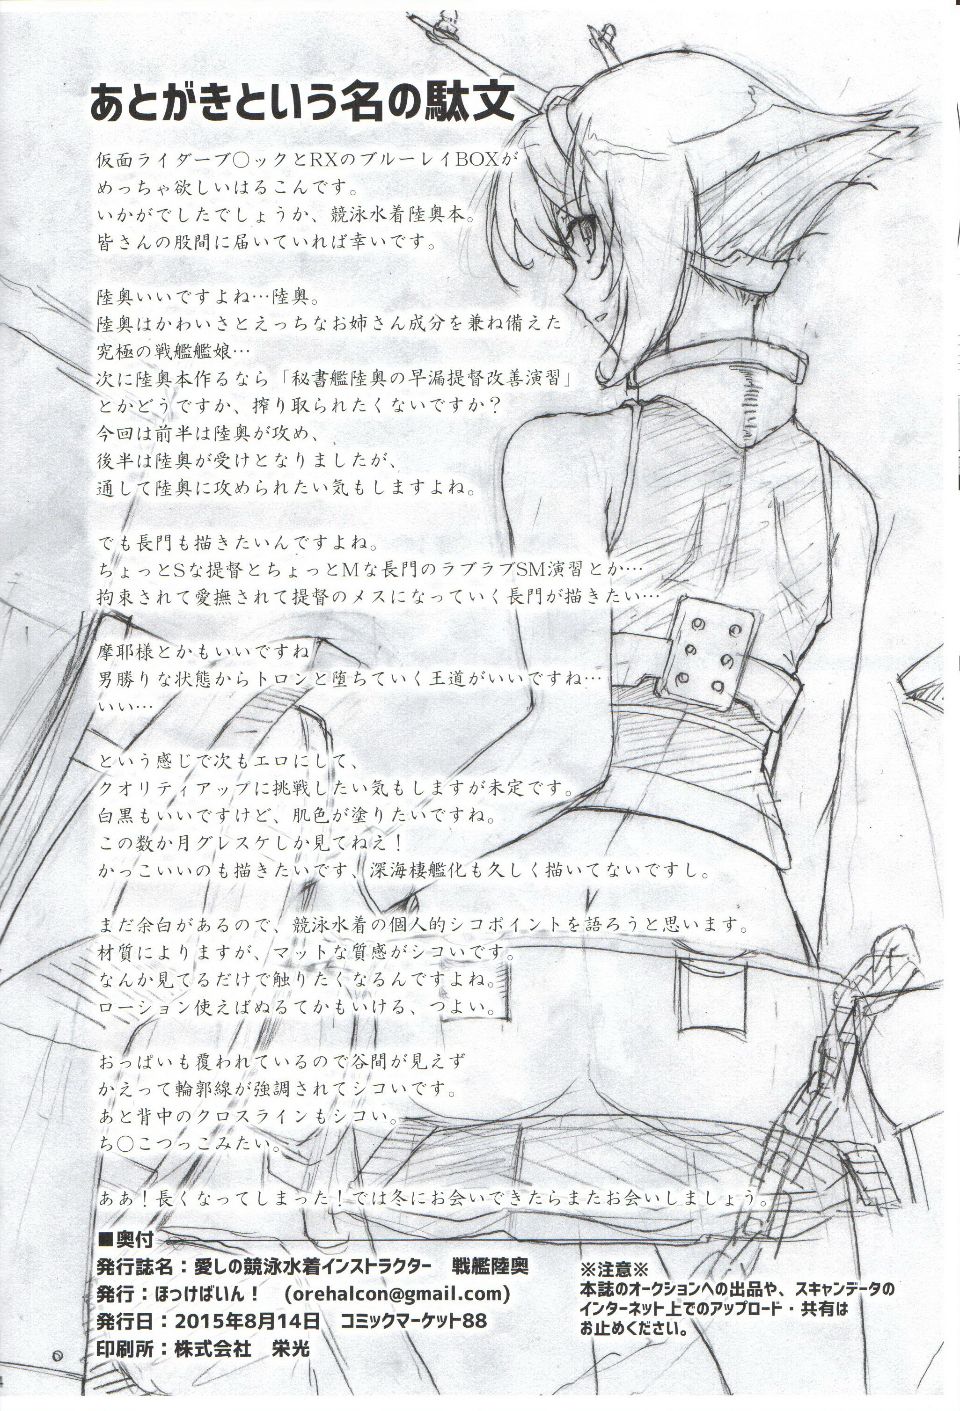 あとがきという名の駄文
仮面ライダーブ〇ックとRXのブルーレイBOXが
めっちゃ欲しいはるこんです。
いかがでしたでしょうか、競泳水着陸奥本。
皆さんの股間に届いていれば幸いです。
陸奥いいですよね…陸奥。
陸奥はかわいさとえっちなお姉さん成分を兼ね備えた
究極の戦艦艦娘…
次に陸奥本作るなら「秘書艦陸奥の早漏提督改善演習」
とかどうですか、搾り取られたくないですか？
今回は前半は陸奥が攻め、
後半は陸奥が受けとなりましたが、
通して陸奥に攻められたい気もしますよね。
でも長門も描きたいんですよね。
ちょっとSな提督とちょっとMな長門のラブラブSM演習とか…
拘束されて愛撫されて提督のメスになっていく長門が描きたい…
摩耶様とかもいいですね
男勝りな状態からトロンと堕ちていく王道がいいですね…
いい…
という感じで次もエロにして、
クオリティアップに挑戦したい気もしますが未定です。
白黒もいいですけど、肌色が塗りたいですね。
この数か月グレスケしか見てねえ！
かっこいいのも描きたいです、深海棲艦化も久しく描いてないですし。
まだ余白があるので、競泳水着の個人的シコポイントを語ろうと思います。
材質によりますが、マットな質感がシコいです。
なんか見てるだけで触りたくなるんですよね。
ローション使えばぬるてかもいける、つよい。
おっぱいも覆われているので谷間が見えず
かえって輪郭線が強調されてシコいです。
あと背中のクロスラインもシコい。
ち〇こつっこみたい。
ああ！長くなってしまった！では冬にお会いできたらまたお会いしましょう。
■奥付
発行誌名：愛しの競泳水着インストラクター　戦艦陸奥
発行：ほっけばいん！　(orehalcon@gmail.com)
発行日：2015年8月14日　コミックマーケット88
印刷所：株式会社　栄光
※注意※
本誌のオークションへの出品や、スキャンデータの
インターネット上でのアップロード・共有は
お止めください。